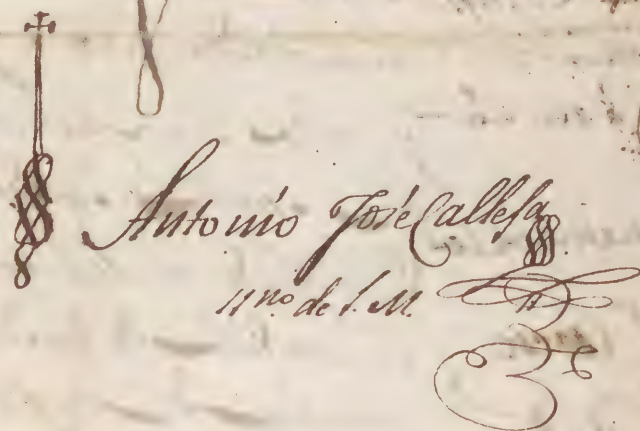 Antonio José Callesa
nno. de S. M.